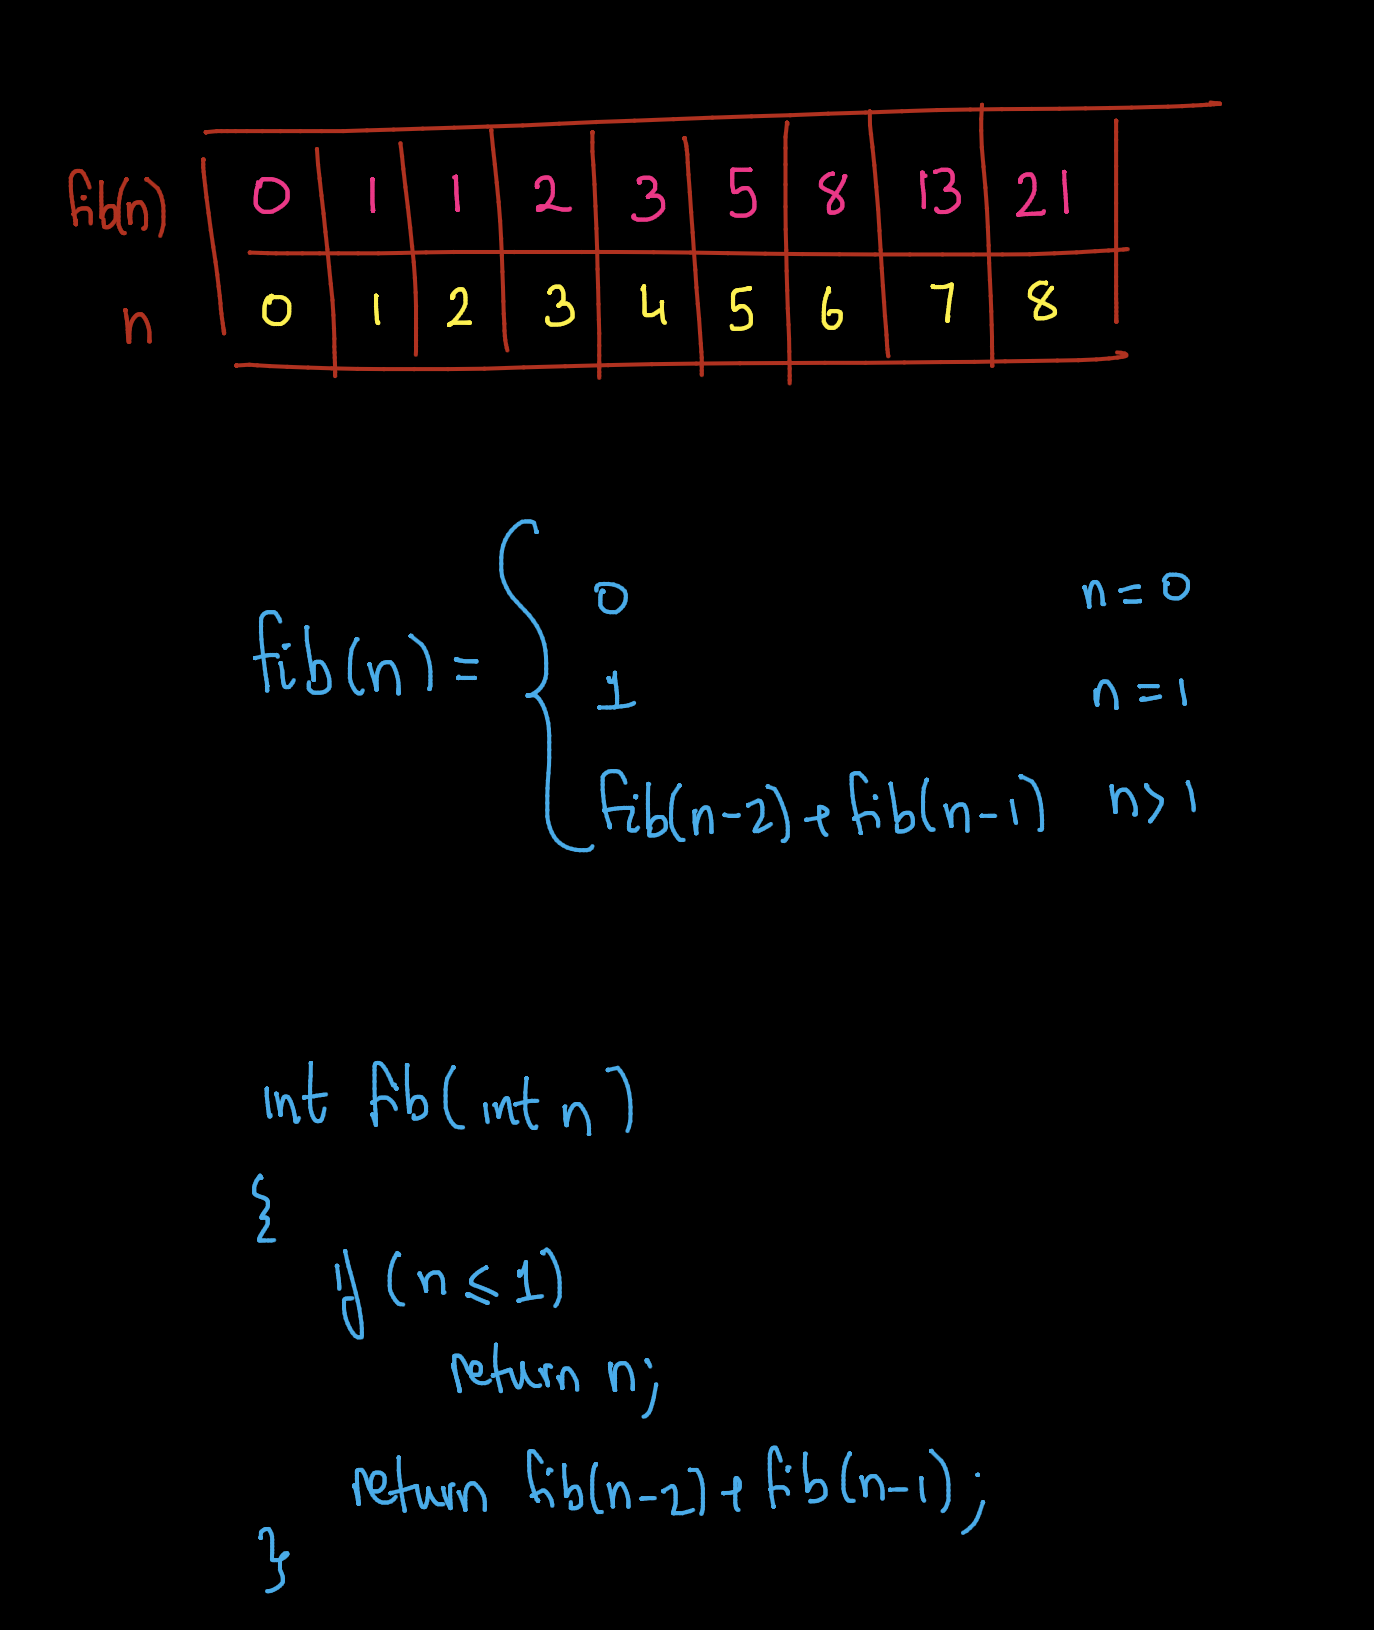 fib(n) 0 1 1 2 3 5 8 13 21
n 0 1 2 3 4 5 6 7 8
fib(n) = {
0 n = 0
1 n = 1
fib(n-2) + fib(n-1) n > 1
int fib(int n)
{
if (n ≤ 1)
return n;
return fib(n-2) + fib(n-1);
}